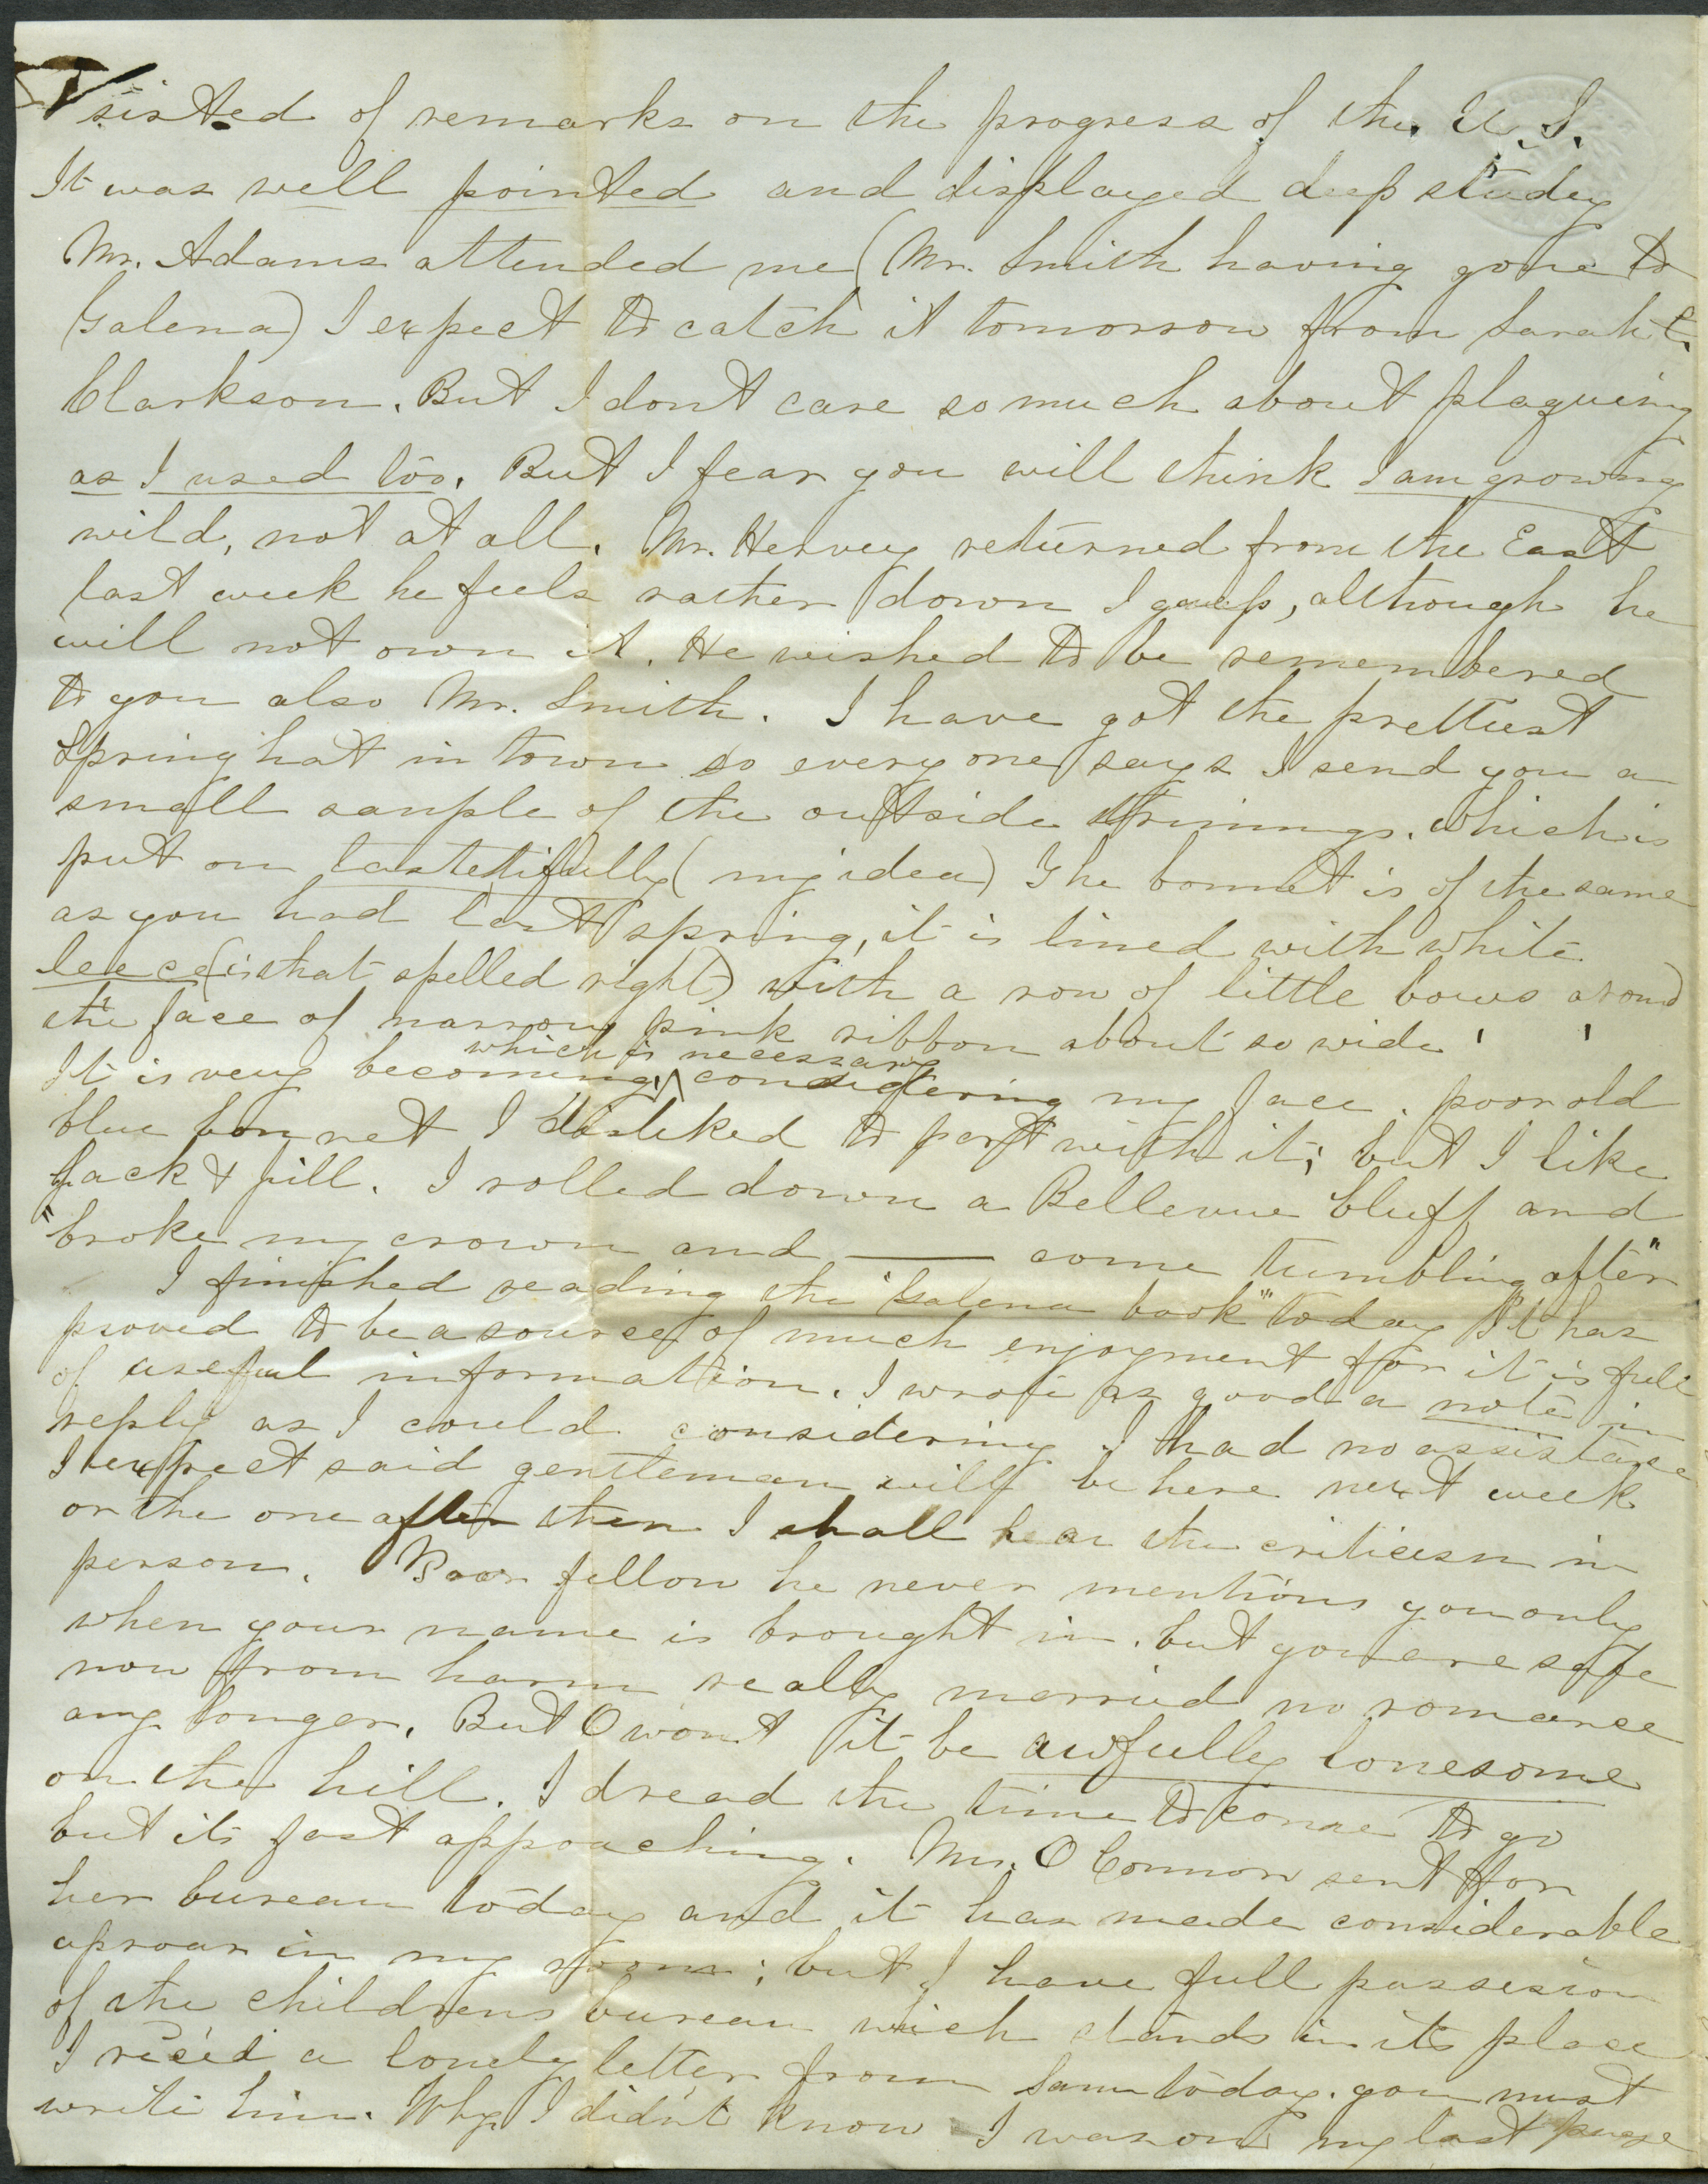 sisted of remarks on the progress of the U.S.
It was well pointed and displayed deep study
Mr. Adams attended me (Mr. Smith having gone to
Galena) I expect to catch it tomorrow from Sarah &
Clarkson. But I dont care so much about plaguing
as I used too. But I fear you will think I am growing
wild, not at all. Mr. Hervey returned from the East
last week he feels rather down I guess, although he
will not own it. He wished to be remembered
to you also Mr. Smith. I have got the prettiest
Spring hat in town so every one says I send you a
small sanple of the outside trimings. which is
put on tastetifully (my idea) The bonnet is of the same
as you had last spring, it is lined with white
leece (is that spelled right) with a row of little bows around
the face of narrow pink ribbon about so wide ' '
which is necessary
It is very becoming, ^ considering my face. poor old
blue bonnet I disliked to part with it; but I like
Jack & Jill. I rolled down a Bellevue bluff and
"broke my crown and —— come tumbling after"
I finished reading the "Galena book" today It has
proved to be a source of much enjoyment for it is full
of useful information. I wrote as good a note in
reply as I could considering I had no assistance
I expect said gentleman will be here next week
or the one after then I shall hear the criticism in
person. Poor fellow he never mentions you only
when your name is brought in. but you are safe
now from harm really married no romance
any longer. But O wont it be awfully lonesome
on the hill. I dread the time to come to go
but its fast approaching. Mrs. O Connor sent for
her bureau today and it has made considerable
uproar in my room; but I have full possesion
of the childrens bureau wich stands in its place
I rec'ed a lonely letter from Sam today. you must
write him. Why I did'nt know I was on my last page